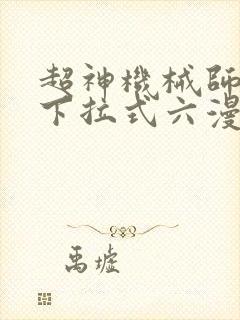 超神機械師
下拉式六漫
禹墟